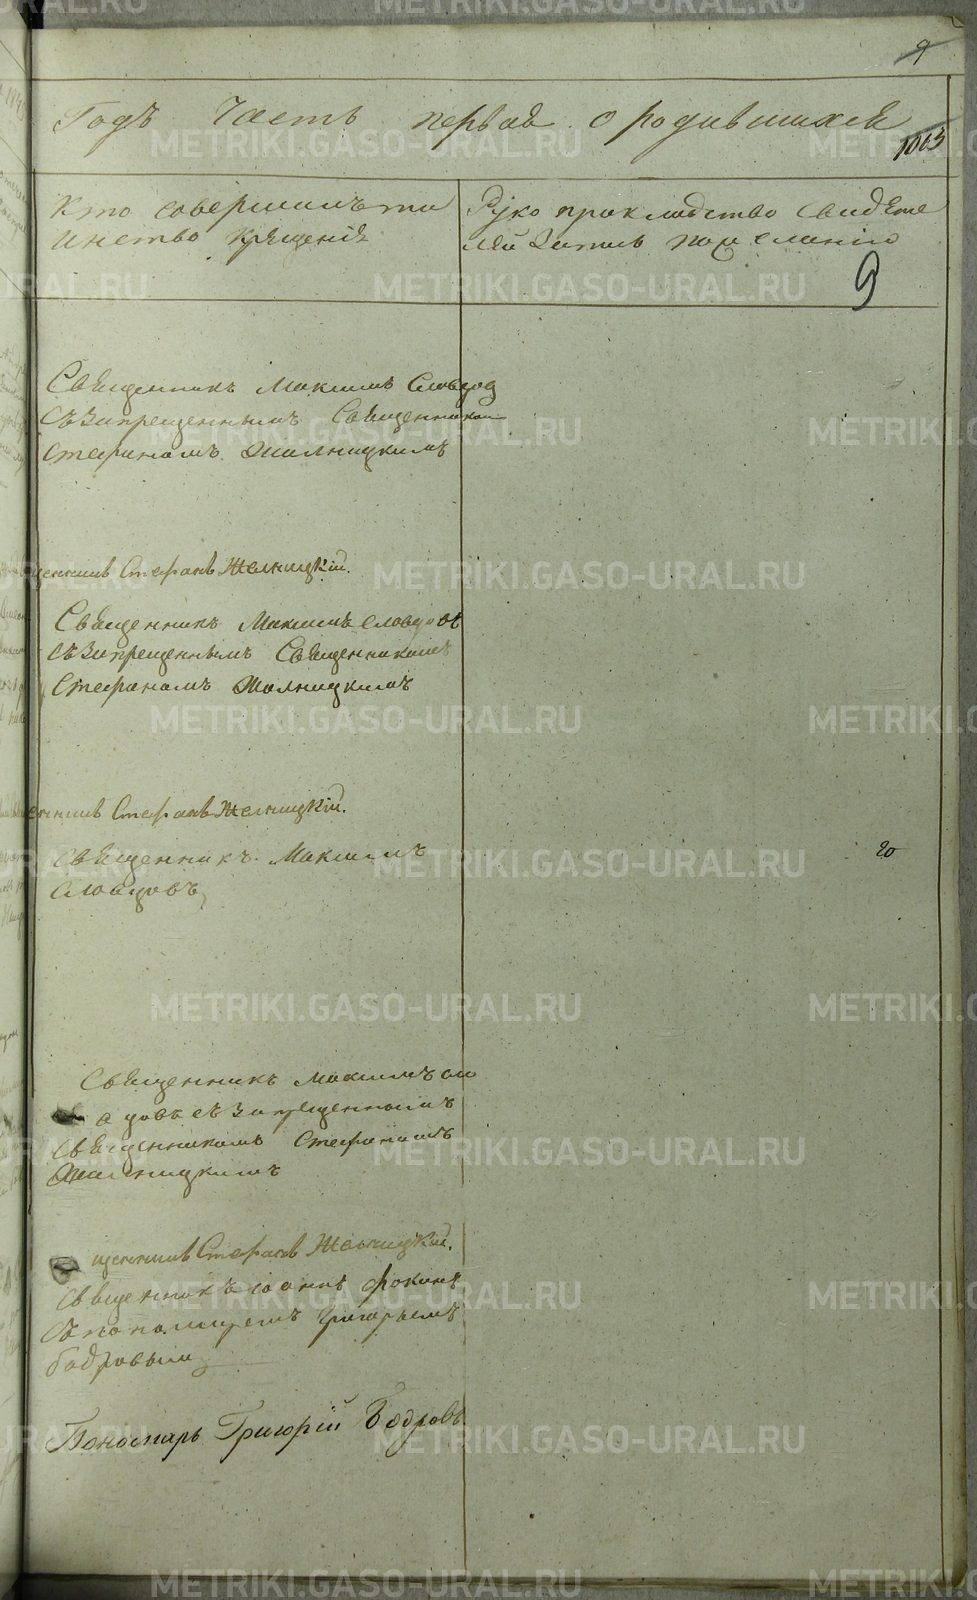 9
Годъ Часть первая о родившихся
1003
Кто совершилъ та
инство крещенія
Руко прикладство свидѣте
лей записи по желанію
9
Священникъ Максимъ Словцов
съ запрещеннымъ Священником
Стефаномъ Жолницкимъ
щенникъ Стефанъ Желницкій.
Священникъ Максимъ Словцовъ
съ запрещеннымъ Священникомъ
Стефаномъ Жолницкимъ
енникъ Стефанъ Желницкій.
Священникъ Максимъ
Словцовъ
20
Священникъ Максимъ сло
цовъ съ запрещеннымъ
Священникомъ Стефаномъ
Жолницкимъ
щенникъ Стефанъ Желницкій.
Священникъ Іоаннъ Фокинъ
съ пономаремъ Григорьемъ
бодровымъ
Пономарь Григорій Бодровъ
METRIKI.GASO-URAL.RU